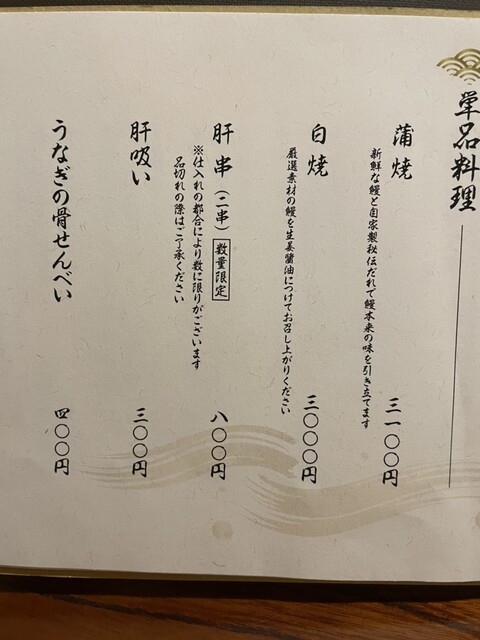 単品料理
蒲焼
新鮮な鰻と自家製秘伝だれで鰻本来の味を引き立てます
三一〇〇円
白焼
厳選素材の鰻を生姜醤油につけてお召し上がりください
三〇〇〇円
肝串（二串）数量限定
※仕入れの都合により数に限りがございます
品切れの際はご了承ください
八〇〇円
肝吸い
三〇〇円
うなぎの骨せんべい
四〇〇円